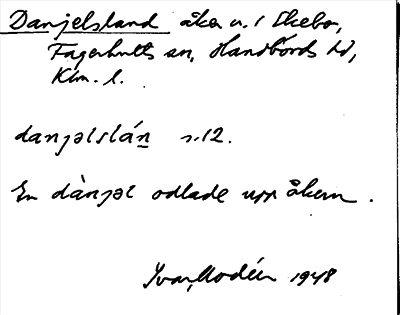 Danjelsland åker n. 1 Ekebo,
Fagerhults sn, Handbörds hd,
Klm. l.
danjəlslán n. 12.
En dànjəl odlade upp åkern.
Ivar Modéer 1948